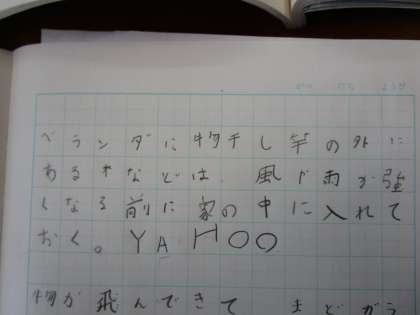 ベランダに物干し竿の外に
ある木などは、風や雨が強
くなる前に家の中に入れて
おく。YAHOO
物が飛んできて まどガラ